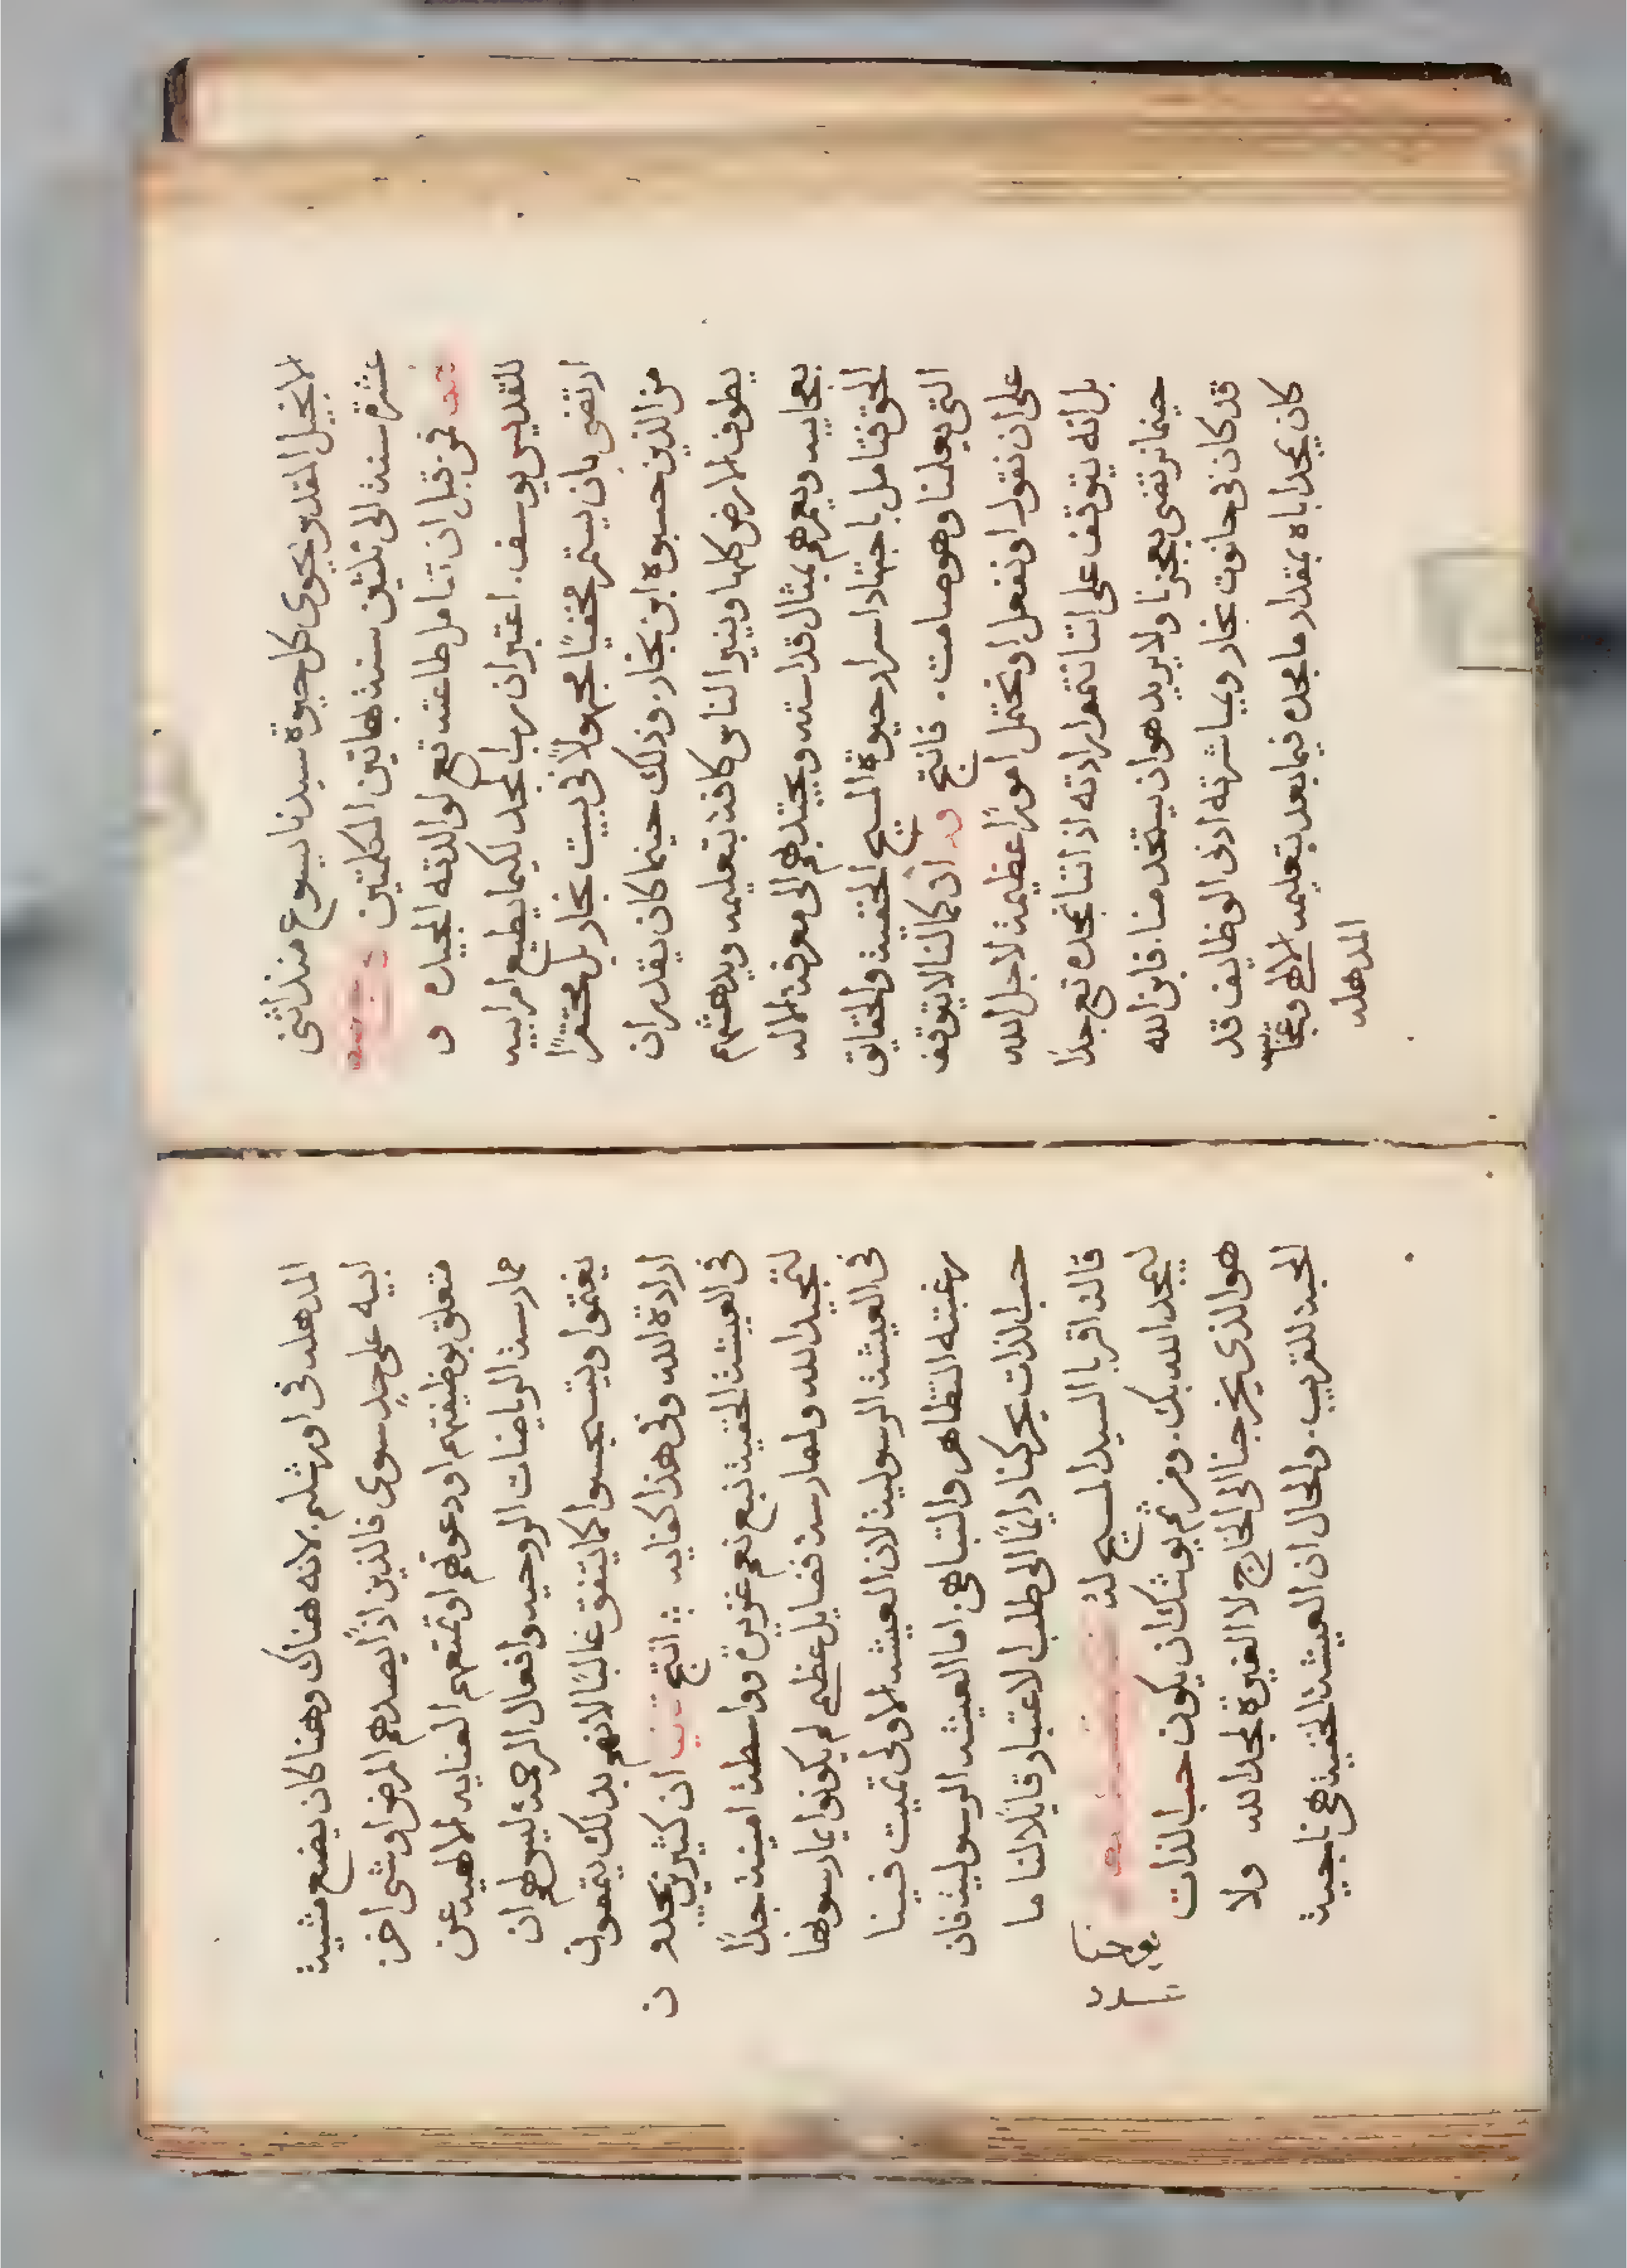 الانجيل المقدس يحوى كل حيوة سيدنا يسوع منذ اثنى
عشرة سنه الى ثلثين سنه بهاتين الكلمتين
فمن قبل ان نتامل طاعته تع لوالدته المجيده و
للقديس يوسف. اعتبر ان رب المجد لكيما يطيع امر ابيه
ارتضى بان يستمر مخفيًا مجهولاً فى بيت نجار بل محتقرًا
من الذين حسبوه ابن نجار. وذلك حينما كان يقدر ان
يطوف الارض كلها وينير الناس كافة بتعليمه ويدهشهم
بعجايبه ويعمرهم بمثال قداسته ويجتذبهم الى معرفة الاله
الحق فتامل باجتهاد اسرار حيوة المسيح الخفيه والحقايق
التى يعلمنا وهو صامت. فانتج ان كمالنا لا يتوقف
على ان نقول او نفعل او نحتمل امورًا عظيمة لاجل الله
بل انه يتوقف على اننا نتمم ارادته اذ اننا نمجده تع جدًا
حينما نرتضى بعجزنا ولا يريد هو ان يستخدمنا. فابن الله
قد كان فى حانوت نجار ومباشرته ادنى الوظايف قد
كان يمجد اباه بمقدار ما مجده فيما بعد بتعليمه الالهى وعجايبه
المدهله
المدهله فى اورشليم. لانه هناك وهنا كان يصنع مشية
ابيه على حدٍ سوى فالذين اذًا يصدهم المرض او شى اخر
متعلق بوظيفتهم او دعوتهم او تمنعهم العنايه الالهيه عن
ممارسة الرياضات الروحيه وافعال الرحمة ليس لهم ان
يغتموا ويتسجسوا كما يتفق غالبًا لانهم بذلك يتممون
ارادة الله وفى هذا كفايه انتج ثانيا ان كثيرين يجدون
فى العيشة الخفية نبع نعم غزيرة وواسطة امينة جدًا
لتمجيد الله ولممارسة فضايل عظمى لم يكونوا يمارسونها
فى العيشة الرسولية لان العيشه الاولى تميت فينا
رغبته التظاهر والتباهى اما العيشه الرسولية فان
حب الذات يحركنا دايمًا الى طلب الاعتبار قايلاً لنا ما
قالته اقربا السيد المسيح له
ليمجد الله بك. ومن ثم يوشك ان يكون حب الذات
هو الذى يخرجنا الى الخارج لا الغيرة لمجد الله ولا
الحب للقريب. والحال ان العيشة الخفية هى ناجية